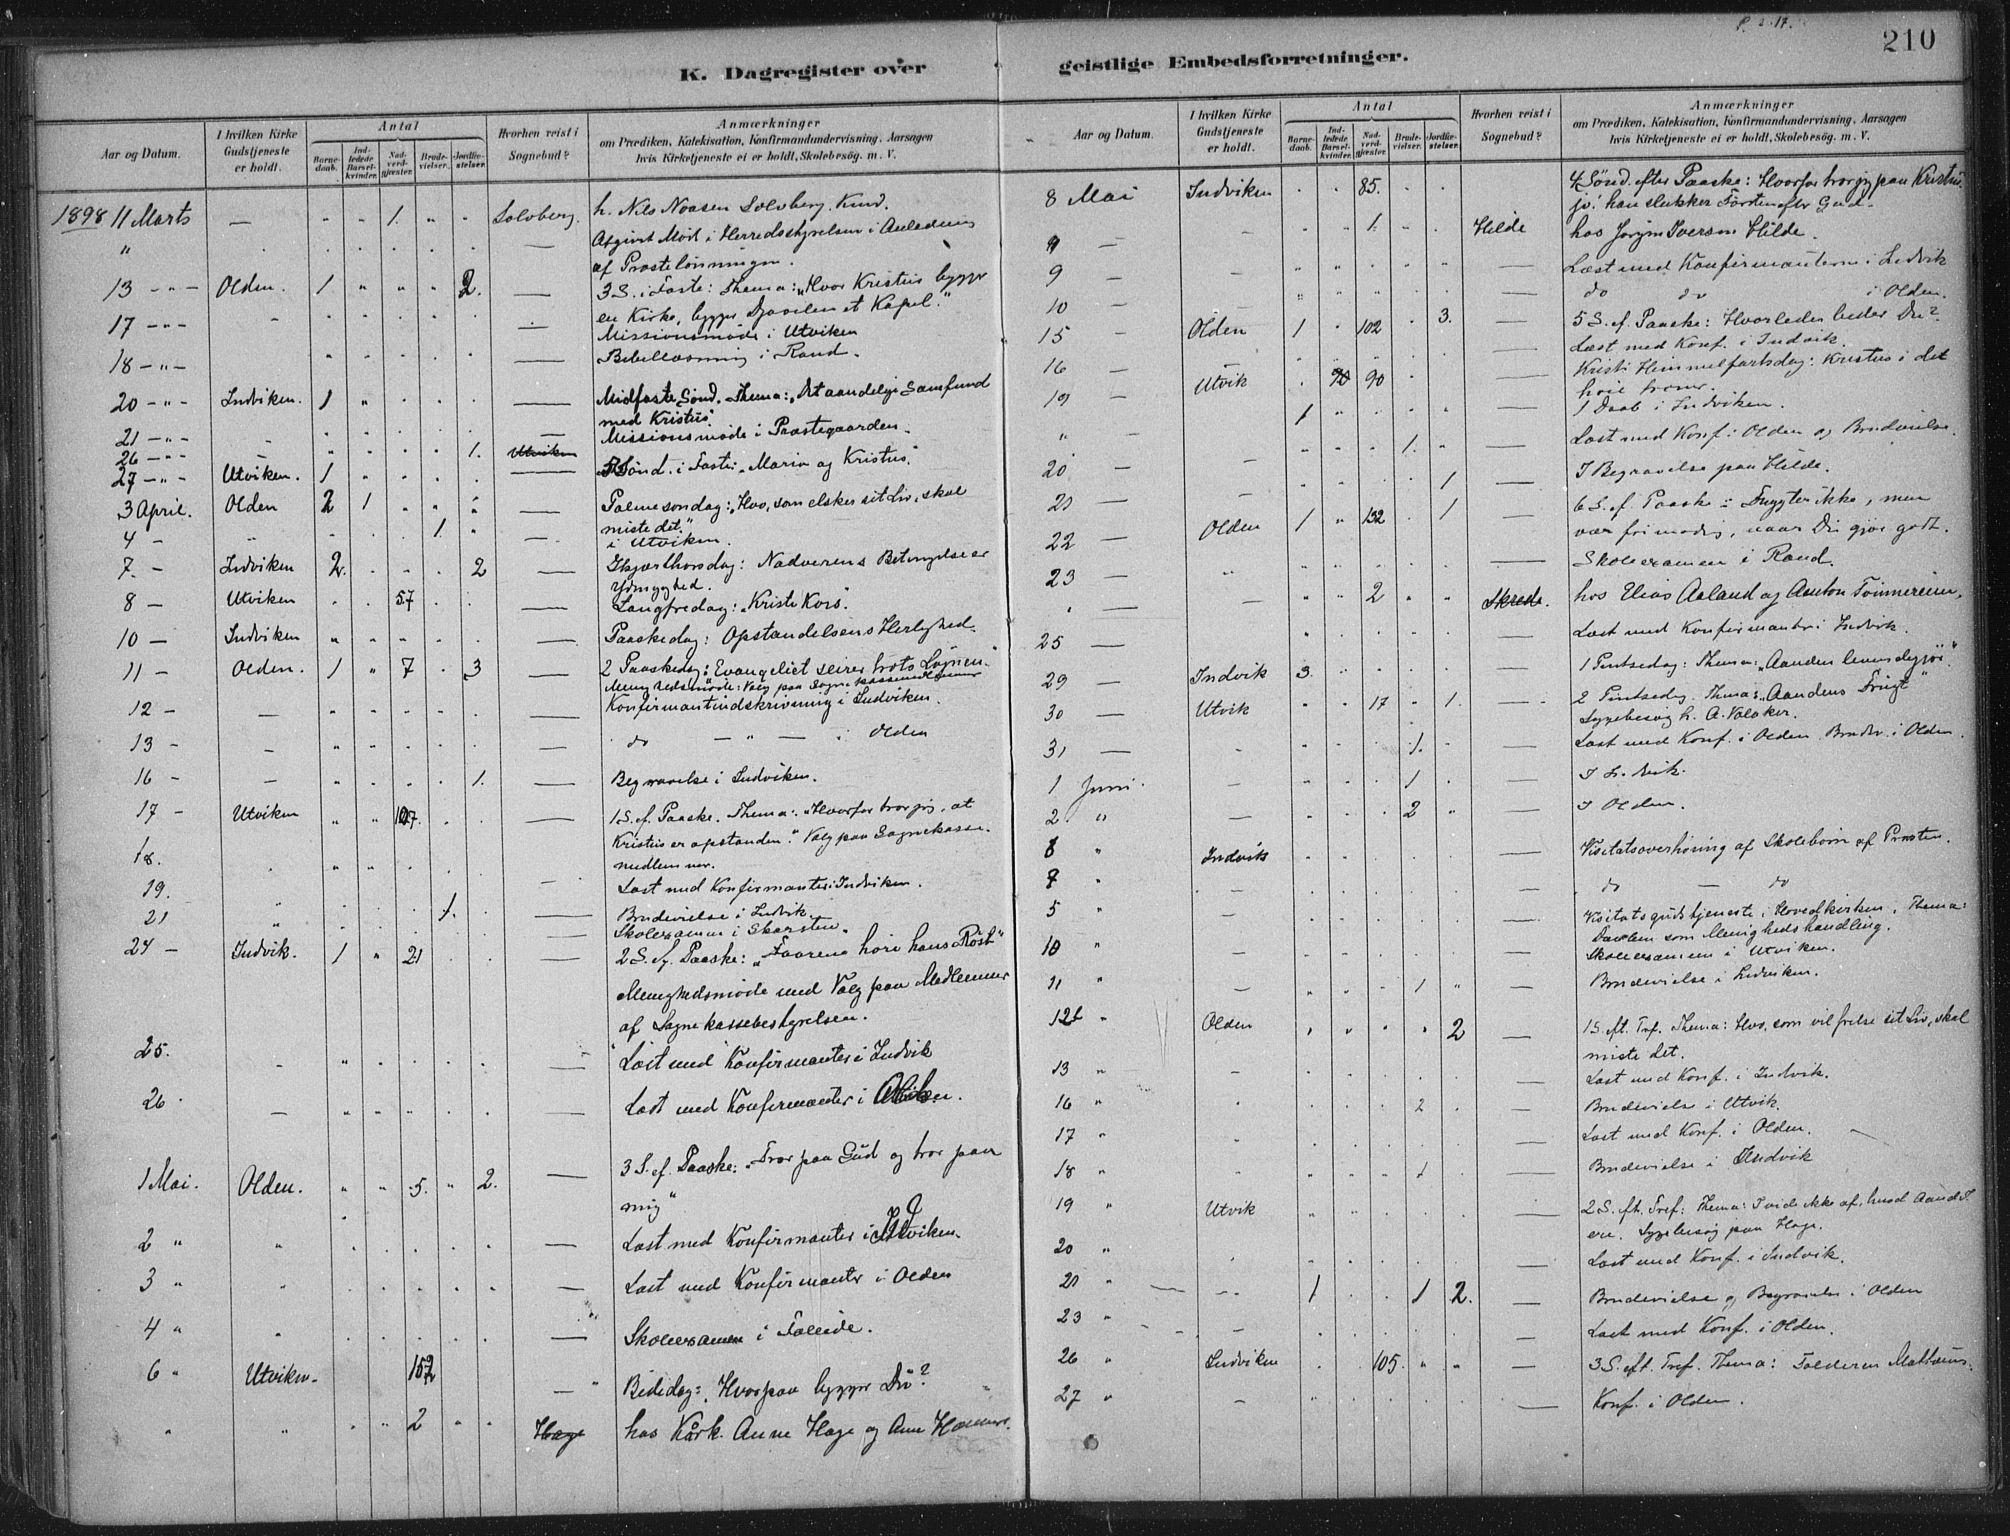 P. 217.
210
K. Dagregister over geistlige Embedsforretninger.
Aar og Datum.
I hvilken Kirke Gudstjeneste er holdt.
Antal
Barne-daab.
Ind-ledede Barsel-kvinder.
Nad-verd-gjæster.
Brude-vielser.
Jordfæ-stelser.
Hvorhen reist i Sognebud?
Anmærkninger
om Prædiken, Katekisation, Konfirmandundervisning, Aarsagen
hvis Kirketjeneste ei er holdt, Skolebesøg. m. V.
1898 11 Marts — " " 1. " " Solvberg. h. Nils Noasen Solvberg. Kund.
" Afgivet Mød i Herredsstyrelsen i Anledning
af Prostelønningen.
13 - " - Olden. 1 " " " 2. — 3 S. i Faste: Thema: „Hvor Kristus bygger
en Kirke, bygger Djævelen et Kapel."
17 - " - Missionsmøde i Utviken
18 - " - Bibellæsning i Rand.
20 - " - Indviken. 1 — Midfaste Sønd. Thema: „Det aandelige Samfund
med Kristus".
21 - " - — Missionsmøde i Præstegaarden.
26 - " - 1. Utviken
27 - " - Utviken. 1 — Sønd. i Faste: Maria og Kristus.
3 April. Olden 2 1 — Palmesøndag: „Hvo, som elsker sit Liv, skal
miste det."
4 — 1. — i Utviken.
7. — Indviken 2. 2 — Skjærthorsdag: Nadverens Betingelse er
Ydmyghed.
8 — Utviken 57 — Langfredag: „Kristi Kors".
10 — Indviken — Paaskedag: Opstandelsens Herlighed.
11 — Olden. 1 " 7 . 3 — 2 Paaskedag: Evangeliet seirer trots Løgnen."
Menighedsmøde: Valg paa Sognekassemedlemmer
12 — — Konfirmantindskrivning i Indviken.
13 - — do — " — i Olden
16 - — 1. — Begravelse i Indviken.
17 - Utviken 107. — 1 S. ef. Paaske. Thema: „Hvorfor tror jeg, at
Kristus er opstanden." Valg paa Sognekasse-
medlemmer.
18.
19. — Læst med Konfirmanter i Indviken.
21 1. — Brudevielse i Indvik.
Skoleexamen i Skarsten.
24 - Indvik. 1 " 21 — 2 S. ef. Paaske: „Faarene höre hans Röst"
Menighedsmøde med Valg paa Medlemmer
af Sognekassebestyrelsen.
25. — Læst med Konfirmanter i Indvik
26 — Læst med Konfirmanter i
1 Mai. Olden. " " 5. " 2. — 3 S. ef. Paaske: „Tror paa Gud og tror paa
mig"
2 " — Læst med Konfirmanter i
3 " — Læst med Konfirmanter i Olden
4 " — Skoleexamen i Faleide.
6 " Utviken. 152 — Bededag: „Hvorpaa bygger Du?
2 Hage hos Kårk. Anne Hage og Anne
Aar og Datum.
I hvilken Kirke Gudstjeneste er holdt.
Antal
Barne-daab.
Ind-ledede Barsel-kvinder.
Nad-verd-gjæster.
Brude-vielser.
Jordfæ-stelser.
Hvorhen reist i Sognebud?
Anmærkninger
om Prædiken, Katekisation, Konfirmandundervisning, Aarsagen
hvis Kirketjeneste ei er holdt, Skolebesøg. m. V.
8 Mai Indviken 85. 4 Sønd. efter Paaske: Hvorfor tror jeg paa Kristus
jo! han slukker Tørsten efter Gud.
9 — 1. Hilde hos Jørgen Iversen Hilde.
9 — — Læst med Konfirmanterne i Indvik
10 — do do i Olden.
15 — Olden 1 " 102 . 3. — 5 S. ef. Paaske: Hvorledes beder Du?
16 — — Læst med Konf. i Indvik.
19 — Utvik 90 90 — Kristi Himmelfartsdag: Kristus i det
høie troner.
1 — 1 Daab i Indviken.
" — 1. — Læst med Konf. i Olden og Brudevielse
20 — 1 — I Begravelse paa Hilde.
21 —
22 — Olden 1 " 132 . 1 — 6 S. ef. Paaske: Frygter ikke, men
vær frimodig, naar Du gjør godt.
23 — — Skoleexamen i Rand.
2 Skrede. hos Elias Aaland og Anton Tommereim.
25 — — Læst med Konfirmanter i Indvik.
29 — Indvik 3. — 1 Pintsedag: Thema: „Aanden levendegjør".
30 — Utvik 17 1. — 2 Pintsedag. Thema: „Aandens Frugt"
Sygebesøg h. A. Valaker.
31 — 1. — Læst med Konf. i Olden Brudev. i Olden.
1 Juni. 1 — I Indvik.
2 " 2 — I Olden.
8 " Indvik — Visitatsoverhøring af Skolebørn af Prosten.
7 " — do — do
5 " — Visitatsgudstjeneste i Hovedkirken. Thema:
Daaben som Menighedshandling.
10 " Skoleexamen i Utviken.
11 " — 1 — Brudevielse i Indviken.
12 " Olden 2 — 1 S. eft. Tref. Thema: Hvo, som vil frelse sit Liv, skal
miste det.
13 " — Læst med Konf. i Indvik.
16 " 2 — Brudevielse i Utvik.
17 " — Læst med Konf. i Olden.
18 " 1 — Brudevielse i Indvik
19 " Utvik — 2 S. eft. Tref: Thema: I vide ikke af, hvad Aand I
ere. Sygebesøg paa Hage.
20 " — Læst med Konf. i Indvik.
21 " 1 1 2. — Brudevielse og Begravelse i Olden
23 " — Læst med Konf. i Olden.
26 " Indviken 105. — 3 S. eft. Tref. Thema: Tolderen Matthæus.
27 " — Konf. i Olden.